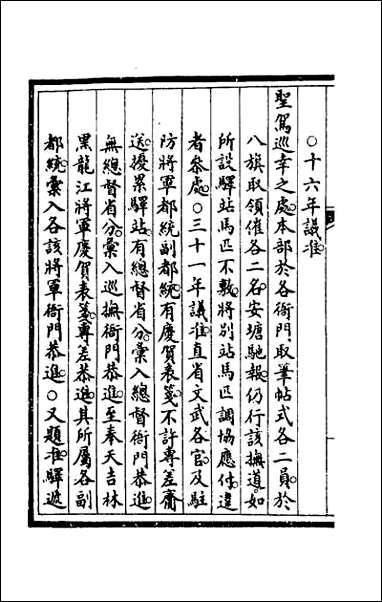 ○十六年議准
聖駕巡幸之處本部於各衙門取筆帖式各二員於
八旗取領催各二名安塘馳報仍行該撫道如
所設驛站馬匹不敷將別站馬匹調協應付違
者參處○三十一年議准直省文武各官及駐
防將軍都統副都統有慶賀表箋不許專差齎
送擾累驛站有總督省分彙入總督衙門恭進
無總督省分彙入巡撫衙門恭進至奉天吉林
黑龍江將軍慶賀表箋專差恭進其所屬各副
都統彙入各該將軍衙門恭進○又題准驛遞